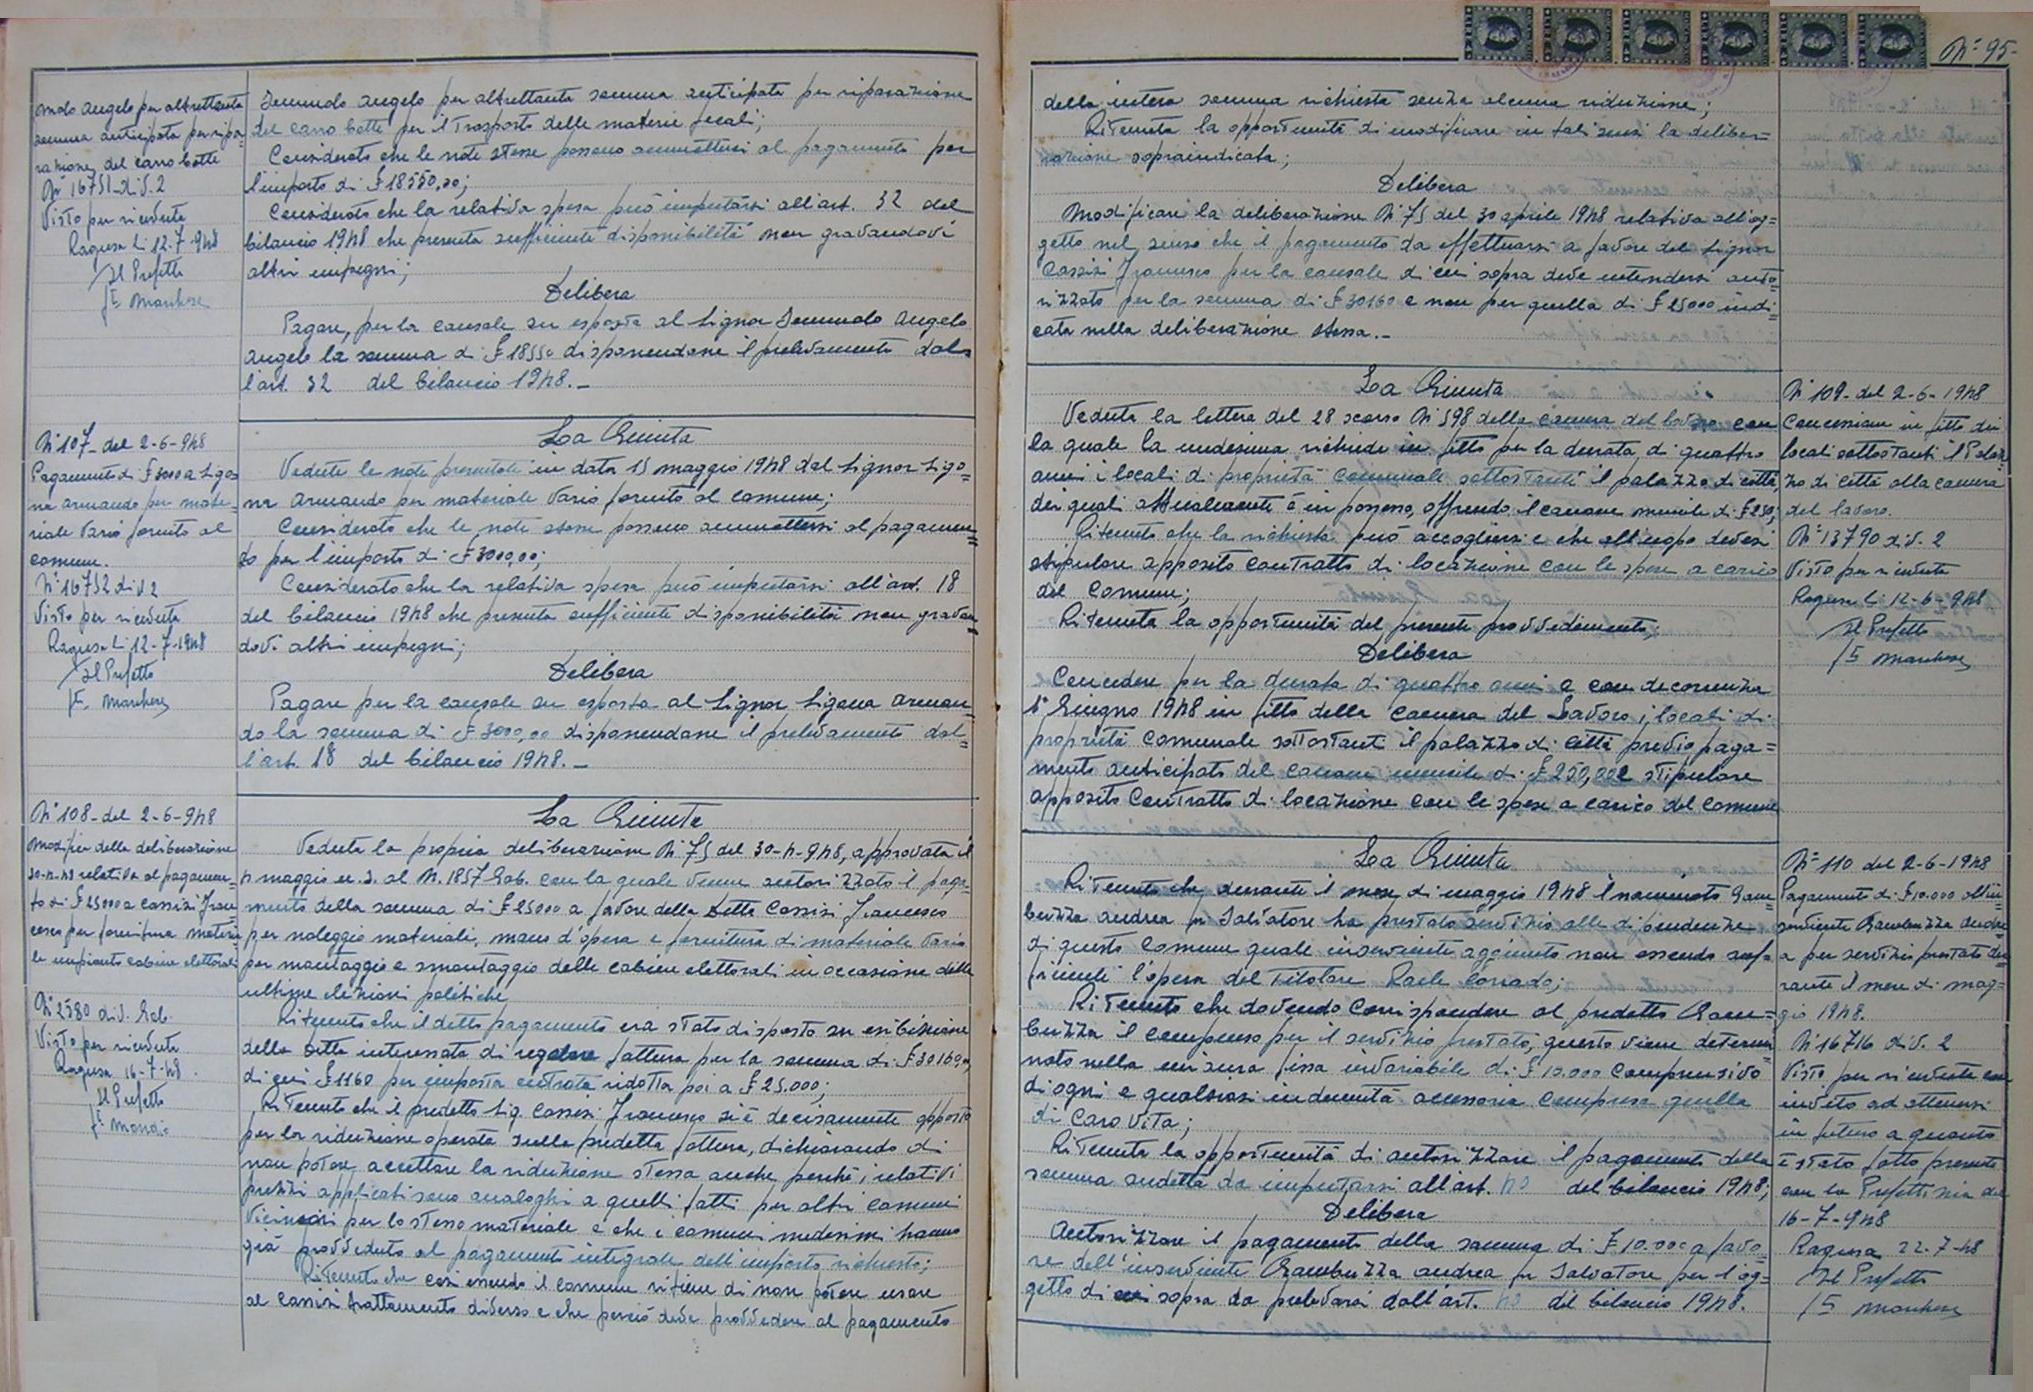 Nº 95-
molo angelo per altrettanta
somma anticipata per ripa-
razione del carro botte
Nº 16751 div. 2
Visto per ricevuta
Ragusa li 12-7-948
Il Prefetto
fto Marchese
Secundo angelo per altrettanta somma anticipata per riparazione
del carro botte per il trasporto delle materie fecali;
Considerato che le note stesse possono ammettersi al pagamento per
l'importo di £ 18550,00;
Considerato che la relativa spesa può imputarsi all'art. 32 del
bilancio 1948 che presenta sufficiente disponibilità non gravandovi
altri impegni;
Delibera
Pagare, per la causale su esposta al Signor angelo
angelo la somma di £ 18550 disponendone il prelevamento dal-
l'art. 32 del bilancio 1948.-
Nº 107- del 2-6-948
Pagamento di £ 3000 a Ligo-
na armando per mate-
riale vario fornito al
comune.
Nº 16752 div 2
Visto per ricevuta
Ragusa li 12-7-1948
Il Prefetto
fto. Marchese
La Giunta
Vedute le note presentate in data 15 maggio 1948 dal Signor Ligo-
na armando per materiale vario fornito al comune;
Considerato che le note stesse possono ammettersi al pagamen-
to per l'importo di £ 3000,00;
Considerato che la relativa spesa può imputarsi all'art. 18
del bilancio 1948 che presenta sufficiente disponibilità non gravan-
dovi altri impegni;
Delibera
Pagare per la causale su esposta al Signor Ligona arman-
do la somma di £ 3000,00 disponendone il prelevamento dal-
l'art. 18 del bilancio 1948.-
Nº 108- del 2-6-948
Modifica della deliberazione
30-4-48 relativa al pagamen-
to di £ 25000 a cassisi Fran-
cesco per fornitura materia
le impianto cabine elettorali
Nº 2580 div. Gab.
Visto per ricevuta
Ragusa 16-7-48
Il Prefetto
fto
La Giunta
Veduta la propria deliberazione Nº 75 del 30-4-948, approvata il
4 maggio u. s. al N. 1857 Gab. con la quale venne autorizzato il paga-
mento della somma di £ 25000 a favore della Ditta Cassisi Francesco
per noleggio materiali, mano d'opera e fornitura di materiale vario
per montaggio e smontaggio delle cabine elettorali in occasione delle
ultime elezioni politiche
Ritenuto che il detto pagamento era stato disposto su esibizione
della Ditta interessata di regolare fattura per la somma di £ 30160,00
di cui £ 1160 per imposta entrata ridotta poi a £ 25.000;
Ritenuto che il predetto Sig. Cassisi Francesco si è decisamente opposto
per la riduzione operata sulla predetta fattura, dichiarando di
non potere accettare la riduzione stessa anche perchè i relativi
prezzi applicati sono analoghi a quelli fatti per altri comuni
viciniori per lo stesso materiale e che i comuni medesimi hanno
già provveduto al pagamento integrale dell'importo richiesto;
Ritenuto che così essendo il comune ritiene di non potere usare
al cassisi trattamento diverso e che perciò deve provvedere al pagamento
della intera somma richiesta senza alcuna riduzione;
Ritenuta la opportunità di modificare in tali sensi la delibe-
razione sopraindicata;
Delibera
Modificare la deliberazione Nº 75 del 30 aprile 1948 relativa all'og-
getto nel senso che il pagamento da effettuarsi a favore del Signor
Cassisi Francesco per la causale di cui sopra deve intendersi auto-
rizzato per la somma di £ 30160 e non per quella di £ 25000 indi-
cata nella deliberazione stessa.-
La Giunta
Veduta la lettera del 28 scorso Nº 598 della camera del lavoro con
la quale la medesima richiede in fitto per la durata di quattro
anni i locali di proprietà comunale sottostanti il palazzo di città,
dei quali attualmente è in possesso, offrendo il canone mensile di £ 250;
Ritenuto che la richiesta può accogliersi e che all'uopo devesi
stipulare apposito contratto di locazione con le spese a carico
del comune;
Ritenuta la opportunità del presente provvedimento;
Delibera
Concedere per la durata di quattro anni e con decorrenza
1º Giugno 1948 in fitto della Camera del Lavoro i locali di
proprietà comunale sottostanti il palazzo di città previo paga-
mento anticipato del canone mensile di £ 250,00 e stipulare
apposito contratto di locazione con le spese a carico del comune
Nº 109- del 2-6-1948
Concessione in fitto dei
locali sottostanti il Palaz-
zo di città alla camera
del lavoro.
Nº 13790 div. 2
Visto per ricevuta
Ragusa li 12-6-948
Il Prefetto
fto Marchese
La Giunta
Ritenuto che durante il mese di maggio 1948 l'nominato Gam-
buzza andrea fu Salvatore ha prestato servizio alle dipendenze
di questo comune quale inserviente aggiunto non essendo suf-
ficiente l'opera del titolare Corrado;
Ritenuto che dovendo corrispondere al predetto Gam-
buzza il compenso per il servizio prestato, questo viene determi-
nato nella misura fissa invariabile di £ 10.000 comprensivo
di ogni e qualsiasi indennità accessoria compresa quella
di caro vita;
Ritenuta la opportunità di autorizzare il pagamento della
somma sudetta da imputarsi all'art. 40 del bilancio 1948;
Delibera
Autorizzare il pagamento della somma di £ 10.000 a favo-
re dell'inserviente Gambuzza andrea fu Salvatore per l'og-
getto di cui sopra da prelevarsi dall'art. 40 del bilancio 1948.
Nº 110 del 2-6-1948
Pagamento di £ 10.000 all'in-
serviente Gambuzza andre-
a per servizio prestato du-
rante il mese di mag-
gio 1948.
Nº 16716 div. 2
Visto per ricevuta con
invito ad attenersi
in futuro a quanto
è stato fatto presente
con la Prefettizia del
16-7-948
Ragusa 22-7-48
Il Prefetto
fto Marchese